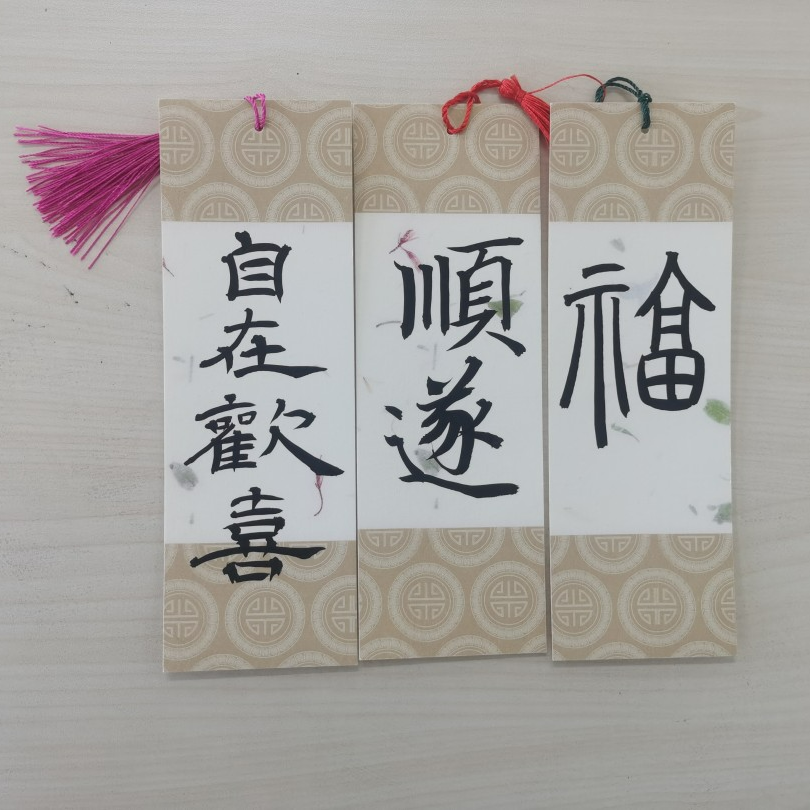 自在歡喜
順遂
福